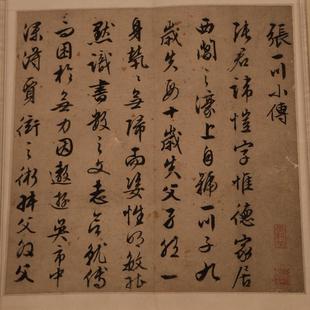 張一川小傳
張君諱愷字惟德家居
西閶之濠上自號一川子九
歲失母十歲失父孑然一
身煢煢無歸而姿性明敏
默識書數之文志就傅
而困於無力因遨遊吳市中
深得賈衒之術父父